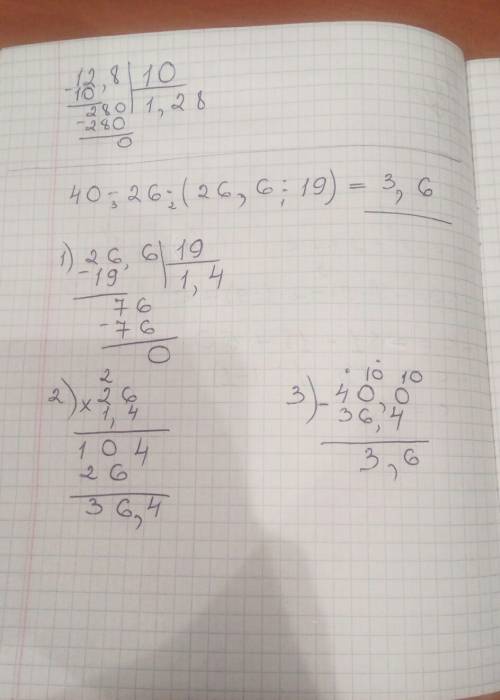 -12,8|10
10 1,28
280
-280
0
40 - 26 : (26,6 : 19) = 3,6
3 2 1
1) 26,6|19
-19 1,4
76
-76
0
2) 2
x 26
1,4
104
26
36,4
3) . 10 10
- 40,0
36,4
3,6